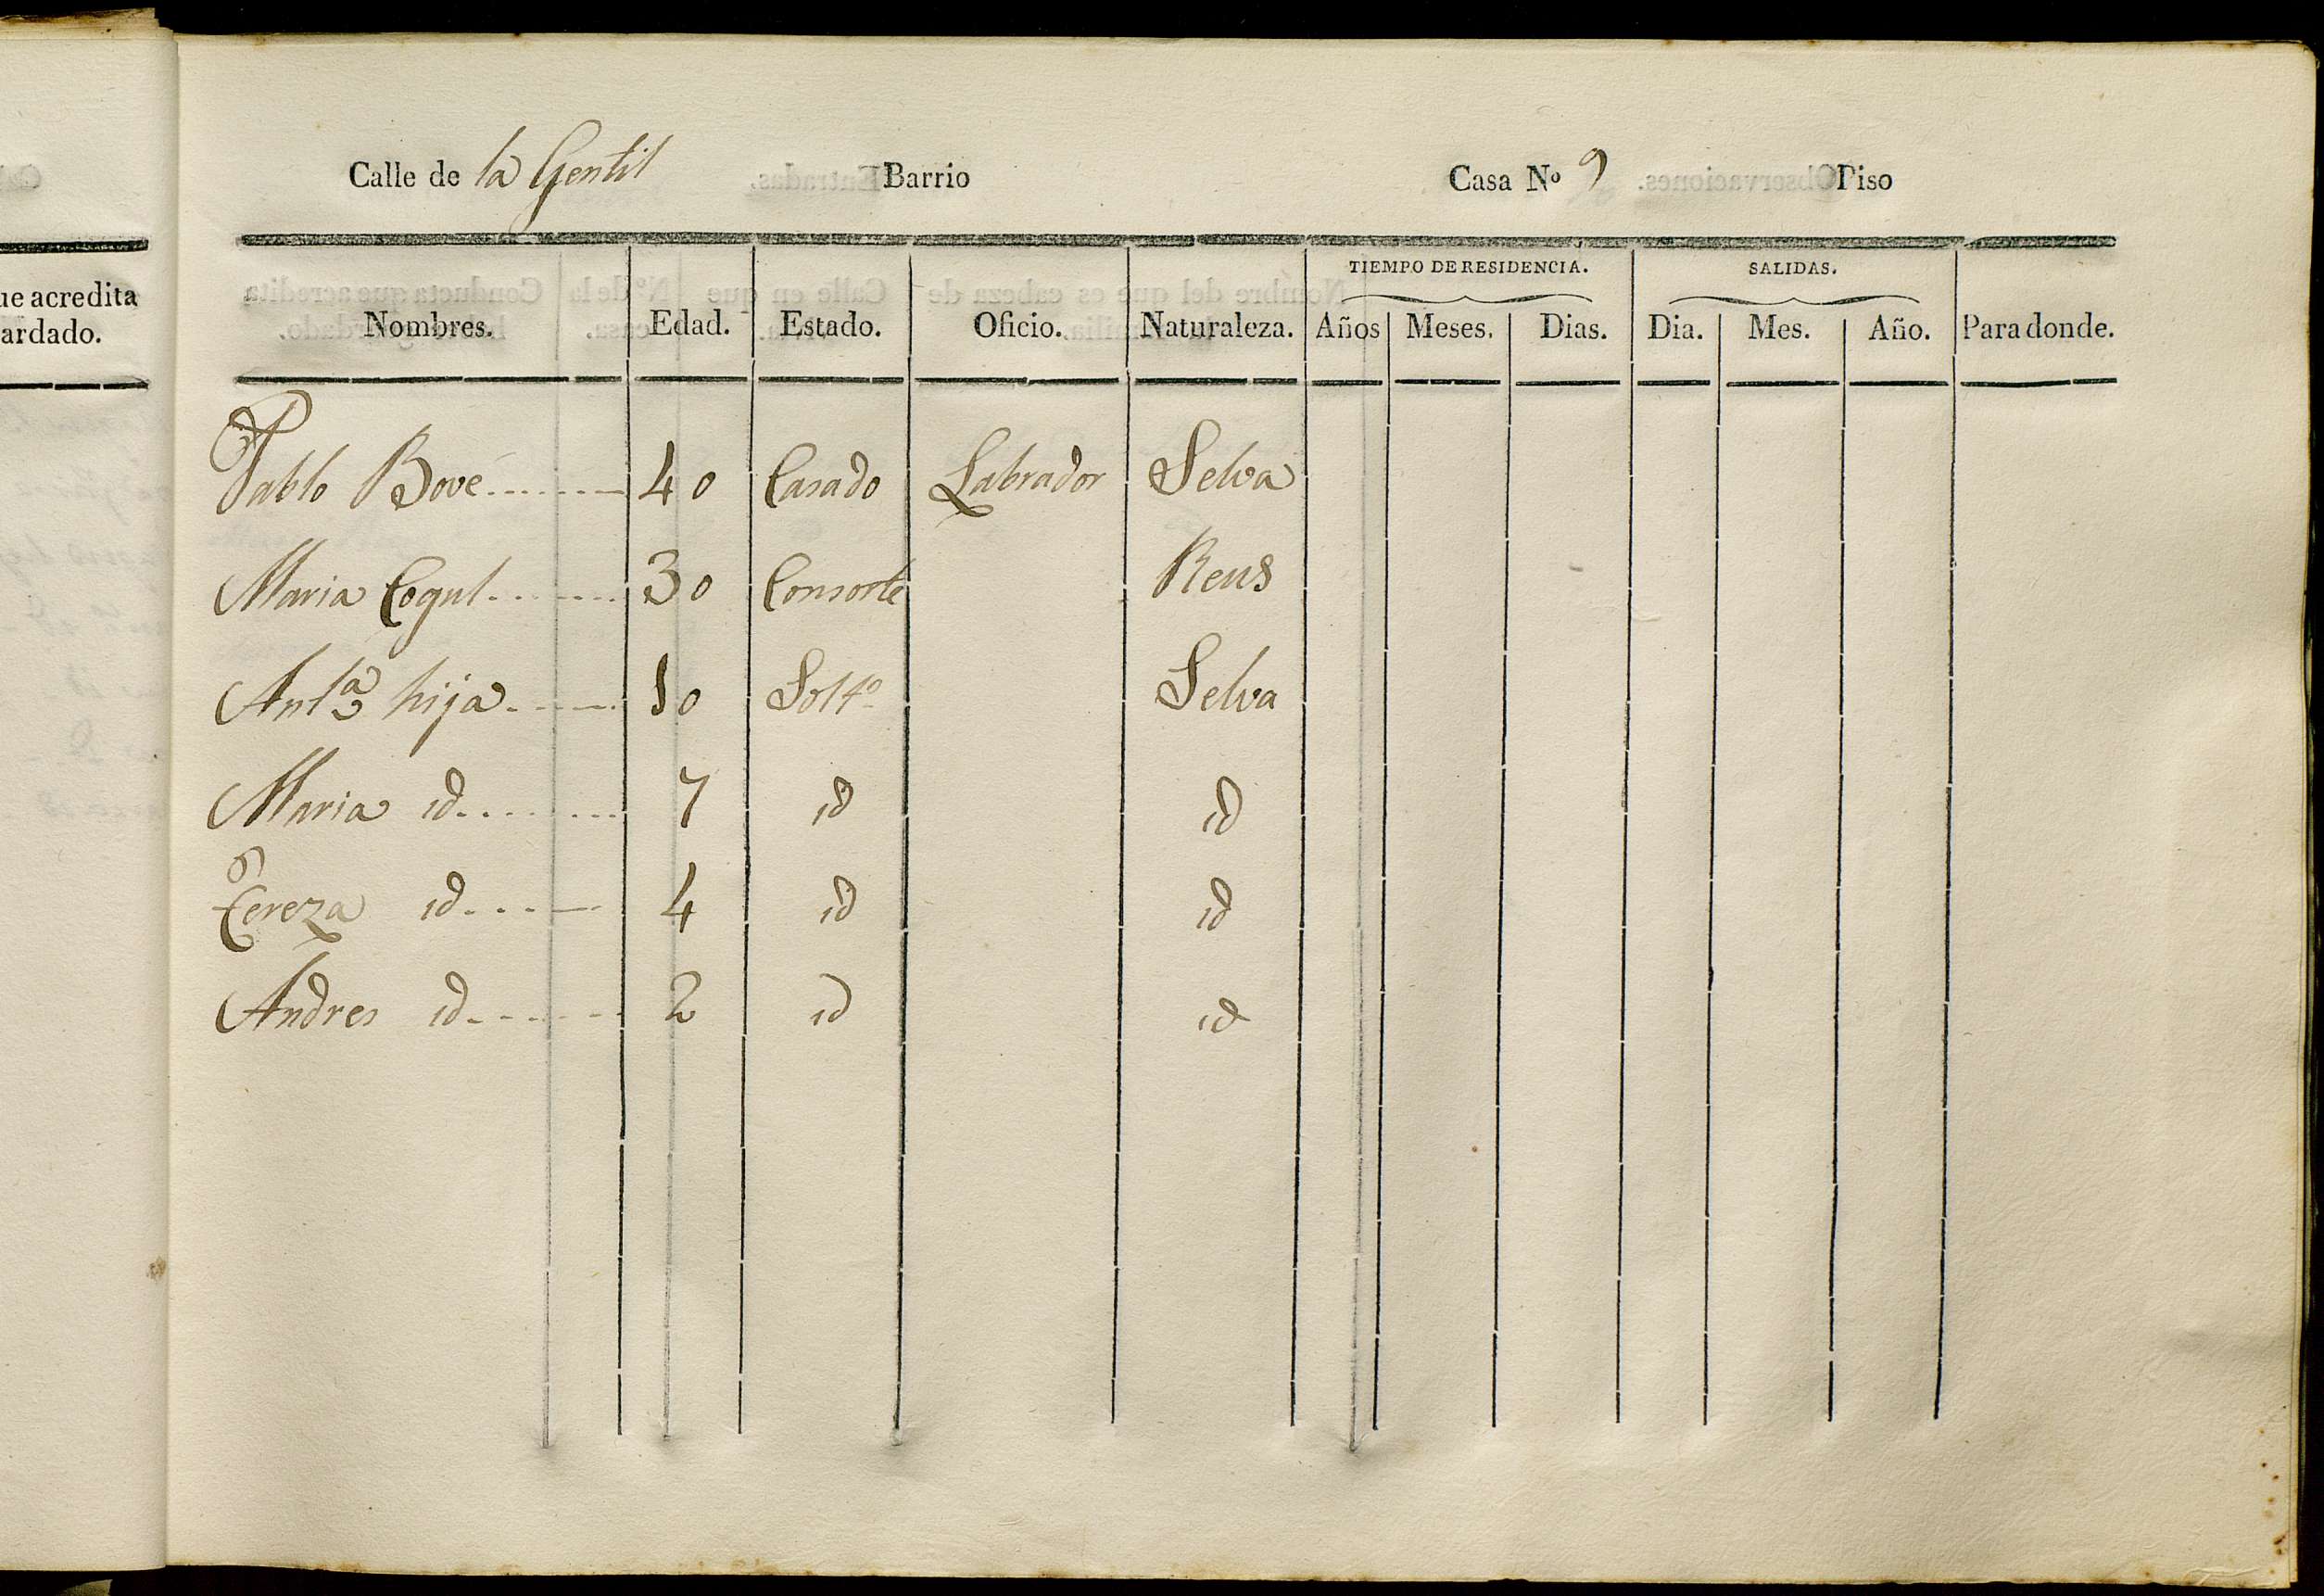 ue acredita
ardado.
Calle de la Gentil Barrio Casa Nº 9 Piso
TIEMPO DE RESIDENCIA. SALIDAS.
Nombres. Edad. Estado. Oficio. Naturaleza. Años Meses. Dias. Dia. Mes. Año. Para donde.
Pablo Bové 40 Casado Labrador Selva
Maria Cogul 30 Consorte Reus
Antª hija 10 Soltº Selva
Maria id 7 id id
Tereza id 4 id id
Andres id 2 id id